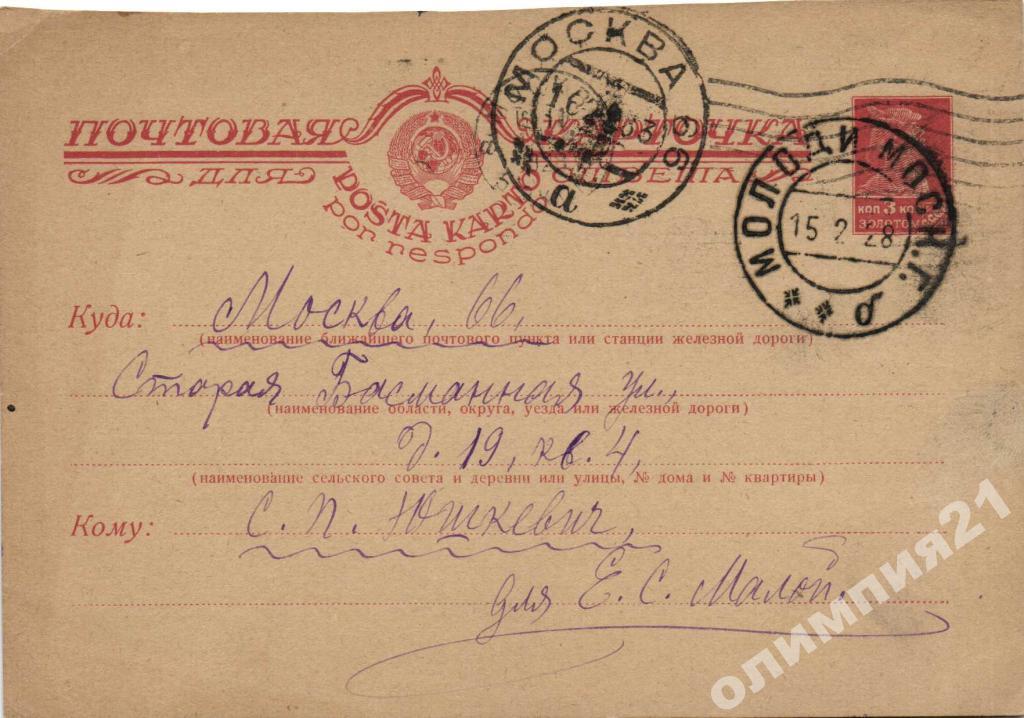 ПОЧТОВАЯ КАРТОЧКА
ДЛЯ ОТВЕТА
POŜTA KARTO
por respondo
МОСКВА 66
16 2
а
МОЛОДИ МОСК. Г.
15 2 28
р
КОП 3 КОП
ЗОЛОТОМ
Куда: Москва, 66,
(наименование ближайшего почтового пункта или станции железной дороги)
Старая Басманная ул.,
(наименование области, округа, уезда или железной дороги)
д. 19, кв. 4,
(наименование сельского совета и деревни или улицы, № дома и № квартиры)
Кому: С. П. Юшкевич,
для Е. С. Малой.
олимпия21